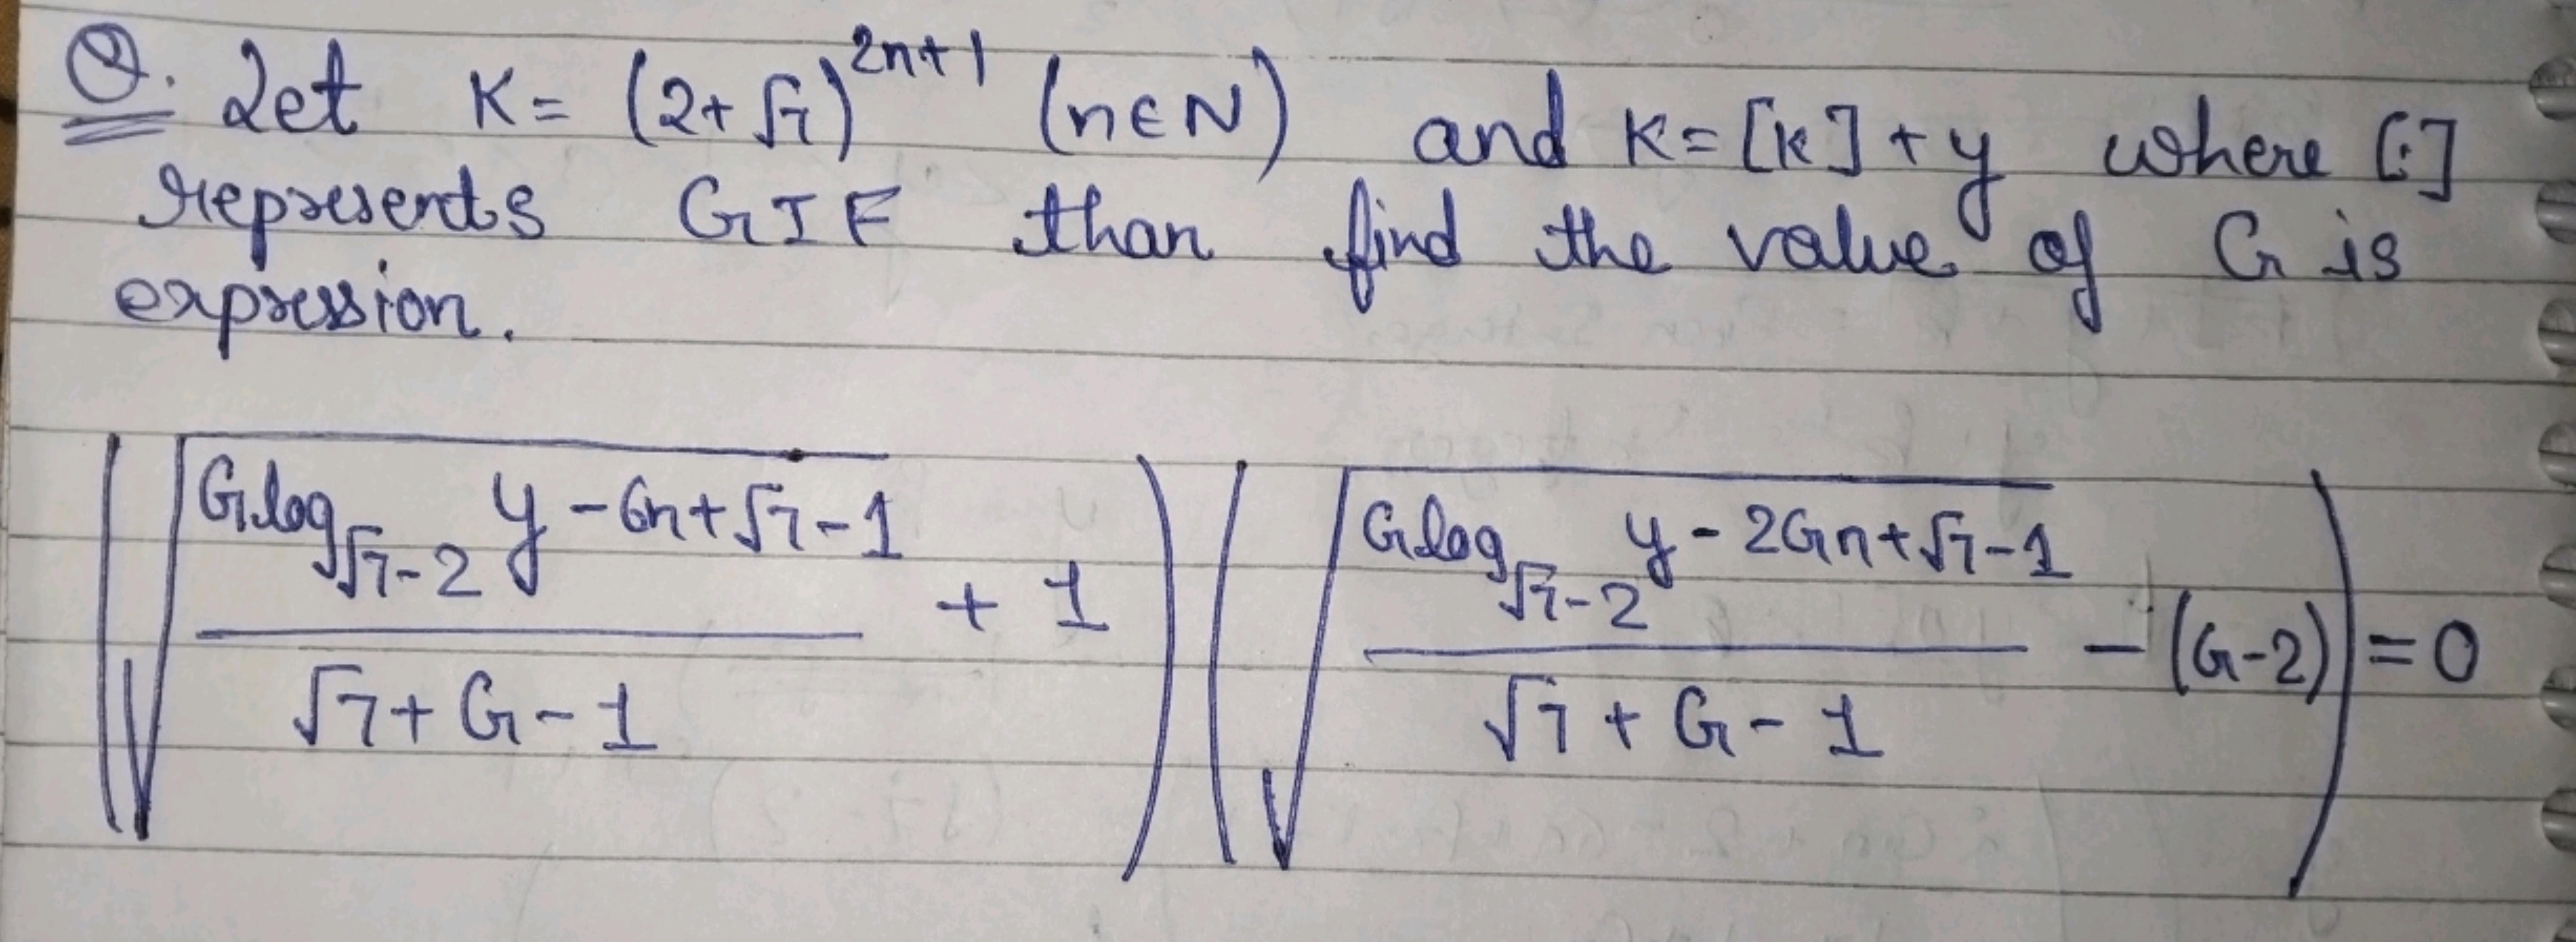 Q. Let K = (2+√7)^{2n+1} (n∈N) and K = [K] + y where [.]
represents GIF than find the value of G is
expression.
(√((G log_{√7-2} y - 6n + √7 - 1)/(√7 + G - 1)) + 1) (√((G log_{√7-2} y - 2Gn + √7 - 1)/(√7 + G - 1)) - (G-2)) = 0